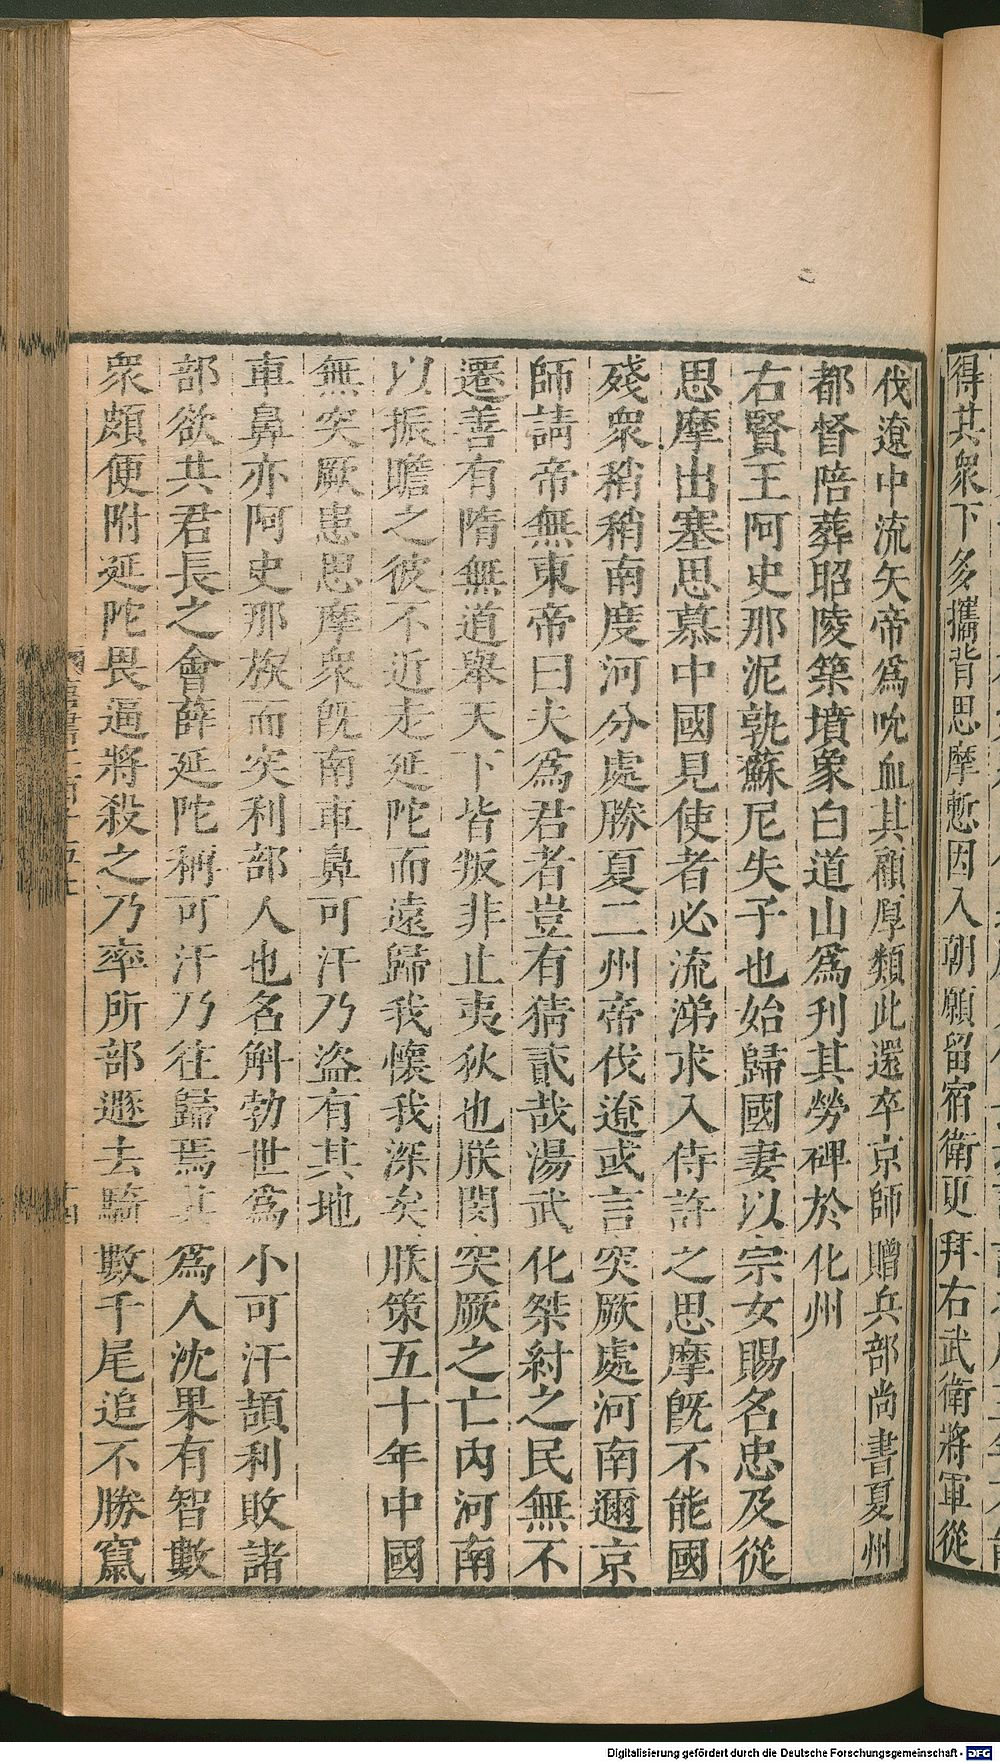 得其衆下多攜背思摩慙因入朝願留宿衛更拜右武衛將軍從
伐遼中流矢帝爲吮血其顧厚類此還卒京師贈兵部尚書夏州
都督陪葬昭陵築墳象白道山爲刋其勞碑於化州
右賢王阿史那泥孰蘇尼失子也始歸國妻以宗女賜名忠及從
思摩出塞思慕中國見使者必流涕求入侍許之思摩旣不能國
殘衆稍稍南度河分處勝夏二州帝伐遼或言突厥處河南邇京
師請帝無東帝曰夫爲君者豈有猜貳哉湯武化桀紂之民無不
遷善有隋無道舉天下皆叛非止夷狄也朕閔突厥之亡內河南
以振贍之彼不近走延陀而遠歸我懷我深矣朕策五十年中國
無突厥患思摩衆旣南車鼻可汗乃盜有其地
車鼻亦阿史那族而突利部人也名斛勃世爲小可汗頡利敗諸
部欲共君長之會薛延陀稱可汗乃往歸焉其爲人沈果有智數
衆頗便附延陀畏逼將殺之乃率所部遯去騎數千尾追不勝竄
Digitalisierung gefördert durch die Deutsche Forschungsgemeinschaft - DFG